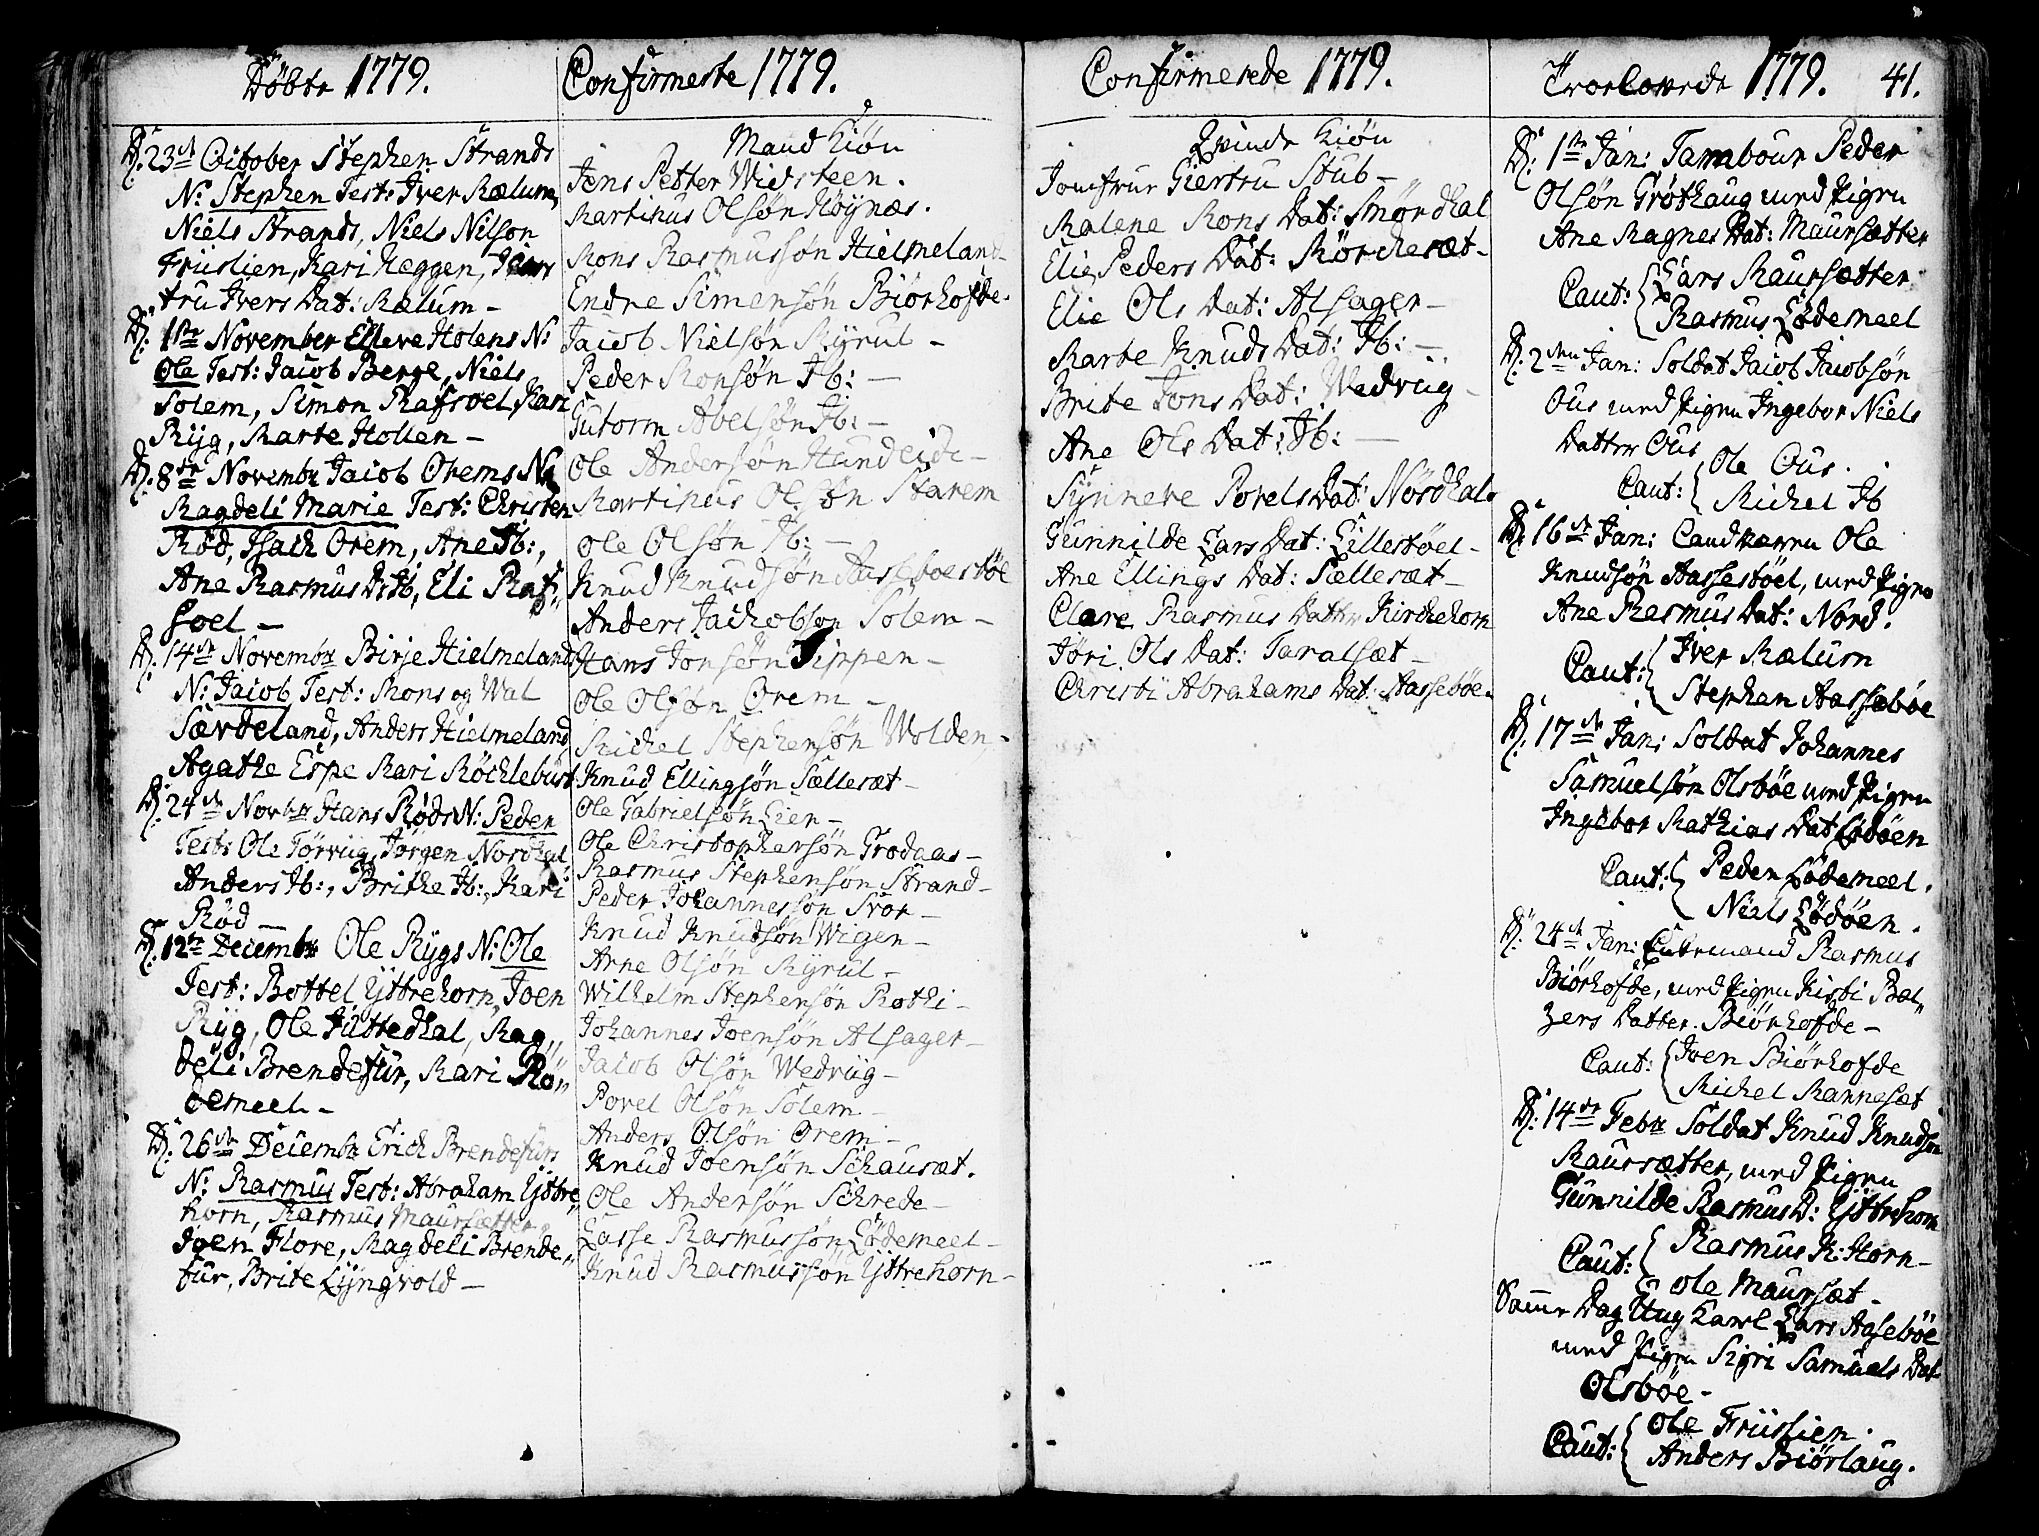 Döbte 1779.
D: 23de October Stephen Strands
N: Stephen Test: Iver Rælum,
Niels Strands, Niels Nilson
Friislien, Kari Heggen,
tru Ivers Dat: Rælum -
D: 1ste November Elleve Holens N:
Ole Test: Jacob Berge, Niels
Solem, Simon Rafsoel, Kari
Ryg, Marte Hollen -
D: 8de Novembr Jacob Orems N:
Magdeli Marie Test: Christen
Röd, Isach Orem, Ane Ib:,
Ane Rasmus D: Ib, Eli Raf„
soel -
D: 14de Novembr Birje Hielmelands
N: Jacob Test: Mons og Wal
Særdeland, Anders Hielmeland
Agathe Espe Kari Möchlebust
D: 24de Novbr Hans Röds N: Peder
Test: Ole Törviig, Jörgen Nordhal
Anders Ib:, Brithe Ib:, Kari
Röd -
D: 12te Decembr Ole Rygs N: Ole
Test: Bottel Yttrehorn, Joen
Ryg, Ole Hiittedhal, Mag„
deli Brendefur, Kari Rö„
demeel -
D: 26de Decembr Erich Brendefurs
N: Rasmus Test: Abraham Yttre„
horn, Rasmus Maursætter,
Joen Flore, Magdeli Brende„
fur, Brite Lyngvold -
Confirmerte 1779.
Mand Kiøn
Jens Petter Widsteen.
Martinus Olsøn Høynæs.
Mons Rasmussøn Hielmeland
Endre Simensøn Biørhofde.
Jacob Nielsøn Myrul -
Peder Monsøn Ib: -
Gutorm Abelsøn Ib: -
Ole Andersøn Hundeide -
Martinus Olsøn Starem
Ole Olsøn Ib: -
Knud Knudsøn Aaseboestøe
Anders Jachobsøn Solem -
Hans Jonsøn Tippen -
Ole Olsøn Orem -
Michel Stephensøn Wolden -
Knud Ellingsøn Sælleræt -
Ole Gabrielsøn Lien -
Ole Christophersøn Grodaas -
Rasmus Stephensøn Strand -
Peder Johannessøn Svor -
Knud Knudsøn Wigen -
Arne Olsøn Myrul -
Wilhelm Stephensøn Rothi -
Johannes Joensøn Alsager -
Jacob Olsøn Wedviig -
Povel Olsøn Solem -
Anders Olsøn Orem -
Knud Joensøn Schausæt.
Ole Andersøn Schrede -
Lasse Rasmussøn Lødemeel -
Knud Rasmussøn Yttrehorn -
Confirmerede 1779.
Qvinde Kiøn
Jomfrue Giertru Stub -
Malene Mons Dat: Smørdhal
Elie Peders Dat: Mörcheræt -
Elie Ols Dat: Alsager -
Marte Knuds Dat: Ib: -
Brite Jons Dat: Wedviig -
Ane Ols Dat: Ib: -
Synneve Povels Dat: Nördhal.
Gunnilde Lars Dat: Lillestøel -
Ane Ellings Dat: Sælleræt -
Clare Rasmus Datter Kirchehorn
Jöri Ols Dat: Taralsæt -
Christi Abrahams Dat: Aassebøe -
Trorlovede 1779. 41.
D: 1te Jan: Tambour Peder
Olsøn Grøthaug med Pigen
Ane Magnes Dat: Maursætter
Caut: Lars Maursætter
Rasmus Lødemeel
D: 2den Jan: Soldat Jacob Jacobsøn
Ous med Pigen Ingebor Niels
Datter Ous
Caut: Ole Ous.
Michel Ib
D: 16de Jan: Landværn Ole
Knudsøn Aassestöel, med Pigen
Ane Rasmus Dat: Nord.
Caut: Iver Rælum
Stephen Aassebøe
D: 17de Jan: Soldat Johannes
Samuelsøn Olsbøe med Pigen
Ingebor Mathias Dat: Lødøen
Caut: Peder Lødemeel.
Niels Lødøen.
D: 24de Jan: Enkemand Rasmus
Biørhofde, med Pigen Kisti Bal„
zers Datter Biørhofde -
Caut: Joen Biørhofde
Michel Mannesæt
D: 14de Febr Soldat Knud Knudsøn
Maursætter, med Pigen
Gunnilde Rasmus D: Yttrehorn
Caut: Rasmus K: Horn -
Ole Maursæt -
Samme Dag Ung Karl Lars Aasebøe
med Pigen Siyri Samuels Dat
Olsbøe -
Caut: Ole Friislien.
Anders Biørlaug.